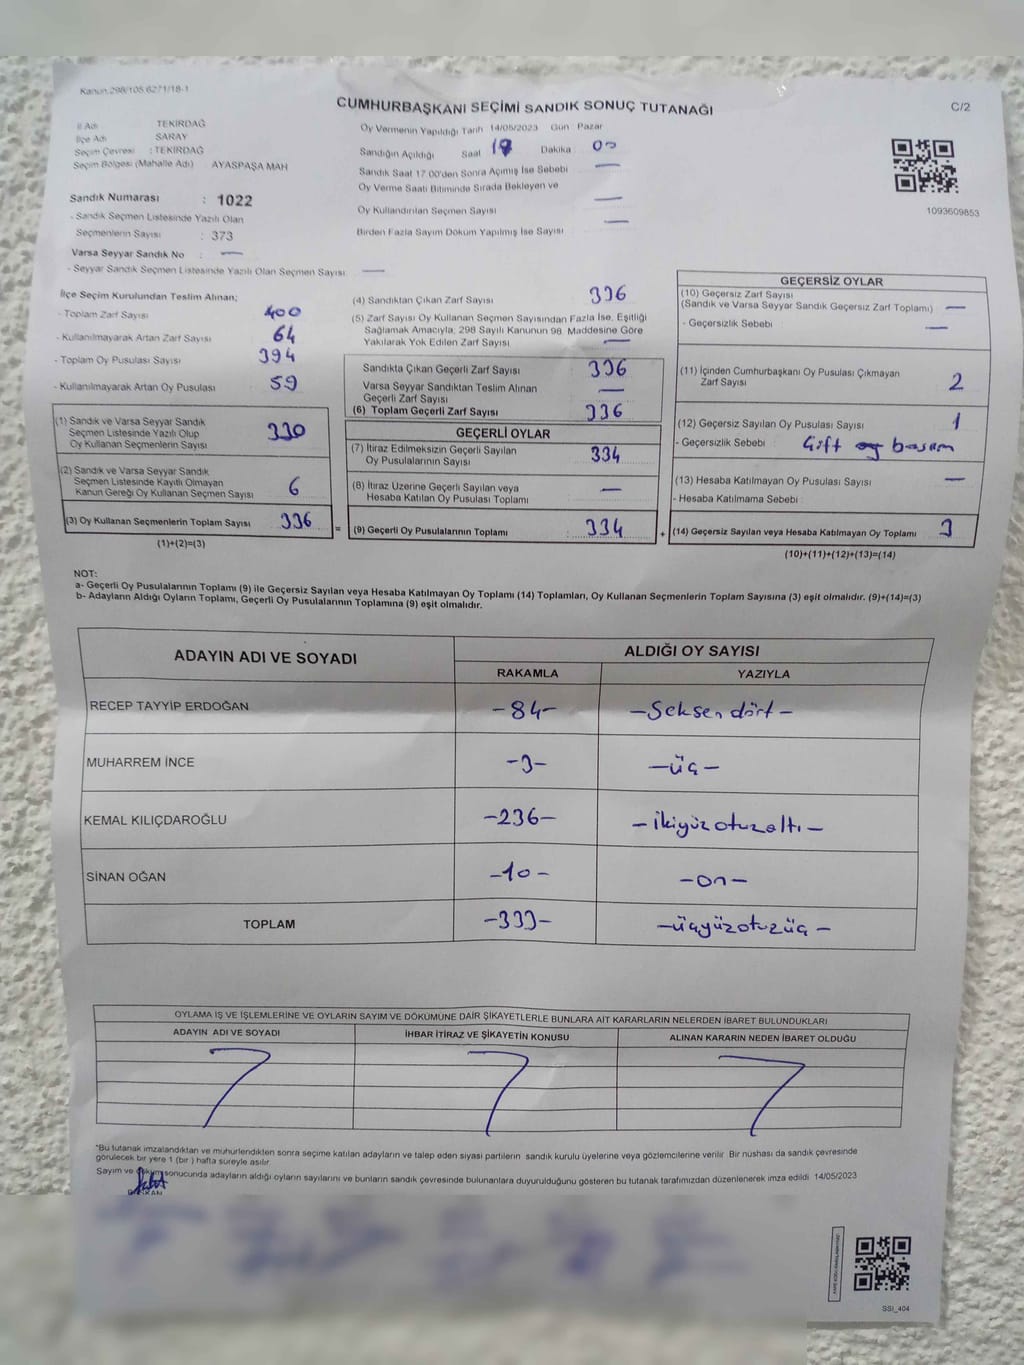 Kanun 298/105 6271/18-1
CUMHURBAŞKANI SEÇİMİ SANDIK SONUÇ TUTANAĞI
C/2
İl Adı TEKİRDAĞ
İlçe Adı SARAY
Seçim Çevresi : TEKİRDAĞ
Seçim Bölgesi (Mahalle Adı) AYASPAŞA MAH
Sandık Numarası : 1022
- Sandık Seçmen Listesinde Yazılı Olan
Seçmenlerin Sayısı : 373
Varsa Seyyar Sandık No : —
- Seyyar Sandık Seçmen Listesinde Yazılı Olan Seçmen Sayısı —
Oy Vermenin Yapıldığı Tarih 14/05/2023 Gün Pazar
Sandığın Açıldığı Saat Dakika : 00
Sandık Saat 17.00'den Sonra Açılmış İse Sebebi —
Oy Verme Saati Bitiminde Sırada Bekleyen ve
Oy Kullandırılan Seçmen Sayısı —
Birden Fazla Sayım Döküm Yapılmış İse Sayısı —
1093609853
İlçe Seçim Kurulundan Teslim Alınan;
- Toplam Zarf Sayısı 400
- Kullanılmayarak Artan Zarf Sayısı 64
- Toplam Oy Pusulası Sayısı 394
- Kullanılmayarak Artan Oy Pusulası 59
(1) Sandık ve Varsa Seyyar Sandık
Seçmen Listesinde Yazılı Olup
Oy Kullanan Seçmenlerin Sayısı 330
(2) Sandık ve Varsa Seyyar Sandık
Seçmen Listesinde Kayıtlı Olmayan
Kanun Gereği Oy Kullanan Seçmen Sayısı 6
(3) Oy Kullanan Seçmenlerin Toplam Sayısı 336
(1)+(2)=(3)
=
(4) Sandıktan Çıkan Zarf Sayısı 336
(5) Zarf Sayısı Oy Kullanan Seçmen Sayısından Fazla İse, Eşitliği
Sağlamak Amacıyla, 298 Sayılı Kanunun 98. Maddesine Göre
Yakılarak Yok Edilen Zarf Sayısı —
Sandıkta Çıkan Geçerli Zarf Sayısı 336
Varsa Seyyar Sandıktan Teslim Alınan
Geçerli Zarf Sayısı —
(6) Toplam Geçerli Zarf Sayısı 336
GEÇERLİ OYLAR
(7) İtiraz Edilmeksizin Geçerli Sayılan
Oy Pusulalarının Sayısı 334
(8) İtiraz Üzerine Geçerli Sayılan veya
Hesaba Katılan Oy Pusulası Toplamı —
(9) Geçerli Oy Pusulalarının Toplamı 334
+
GEÇERSİZ OYLAR
(10) Geçersiz Zarf Sayısı
(Sandık ve Varsa Seyyar Sandık Geçersiz Zarf Toplamı) —
- Geçersizlik Sebebi —
(11) İçinden Cumhurbaşkanı Oy Pusulası Çıkmayan
Zarf Sayısı 2
(12) Geçersiz Sayılan Oy Pusulası Sayısı 1
- Geçersizlik Sebebi Çift oy basım
(13) Hesaba Katılmayan Oy Pusulası Sayısı —
- Hesaba Katılmama Sebebi
(14) Geçersiz Sayılan veya Hesaba Katılmayan Oy Toplamı 3
(10)+(11)+(12)+(13)=(14)
NOT:
a- Geçerli Oy Pusulalarının Toplamı (9) ile Geçersiz Sayılan veya Hesaba Katılmayan Oy Toplamı (14) Toplamları, Oy Kullanan Seçmenlerin Toplam Sayısına (3) eşit olmalıdır. (9)+(14)=(3)
b- Adayların Aldığı Oyların Toplamı, Geçerli Oy Pusulalarının Toplamına (9) eşit olmalıdır.
ADAYIN ADI VE SOYADI ALDIĞI OY SAYISI
RAKAMLA YAZIYLA
RECEP TAYYİP ERDOĞAN -84- -Seksen dört-
MUHARREM İNCE -3- -üç-
KEMAL KILIÇDAROĞLU -236- -ikiyüzotuzaltı-
SİNAN OĞAN -10- -on-
TOPLAM -333- -üçyüzotuzüç-
OYLAMA İŞ VE İŞLEMLERİNE VE OYLARIN SAYIM VE DÖKÜMÜNE DAİR ŞİKAYETLERLE BUNLARA AİT KARARLARIN NELERDEN İBARET BULUNDUKLARI
ADAYIN ADI VE SOYADI İHBAR İTİRAZ VE ŞİKAYETİN KONUSU ALINAN KARARIN NEDEN İBARET OLDUĞU
*Bu tutanak imzalandıktan ve mühürlendikten sonra seçime katılan adayların ve talep eden siyasi partilerin sandık kurulu üyelerine veya gözlemcilerine verilir Bir nüshası da sandık çevresinde
görülecek bir yere 1 (bir) hafta süreyle asılır
Sayım ve döküm sonucunda adayların aldığı oyların sayılarını ve bunların sandık çevresinde bulunanlara duyurulduğunu gösteren bu tutanak tarafımızdan düzenlenerek imza edildi 14/05/2023
BAŞKAN
SSI_404